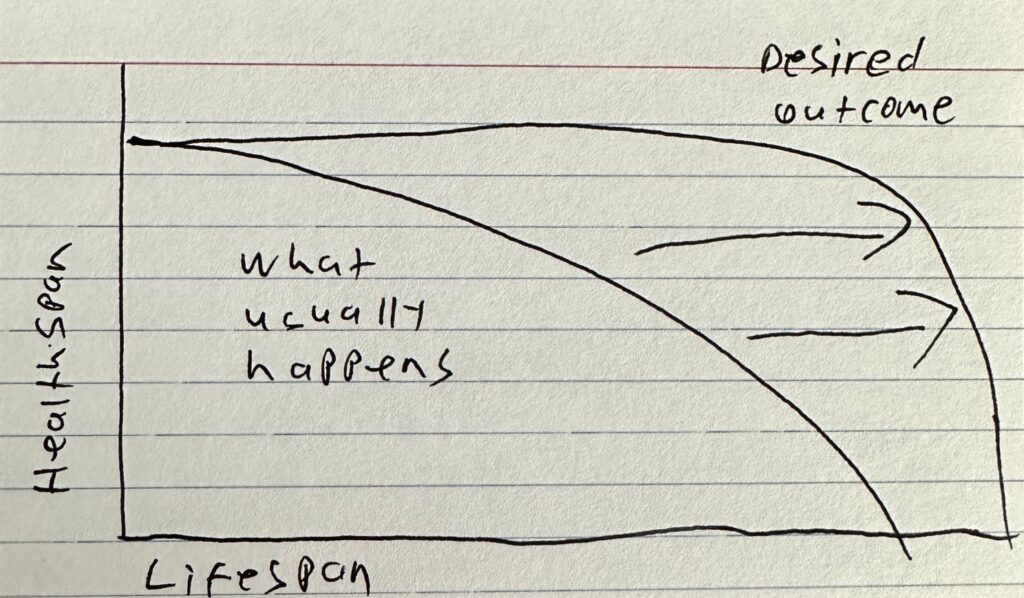 Desired
outcome
what
usually
happens
Healthspan
Lifespan